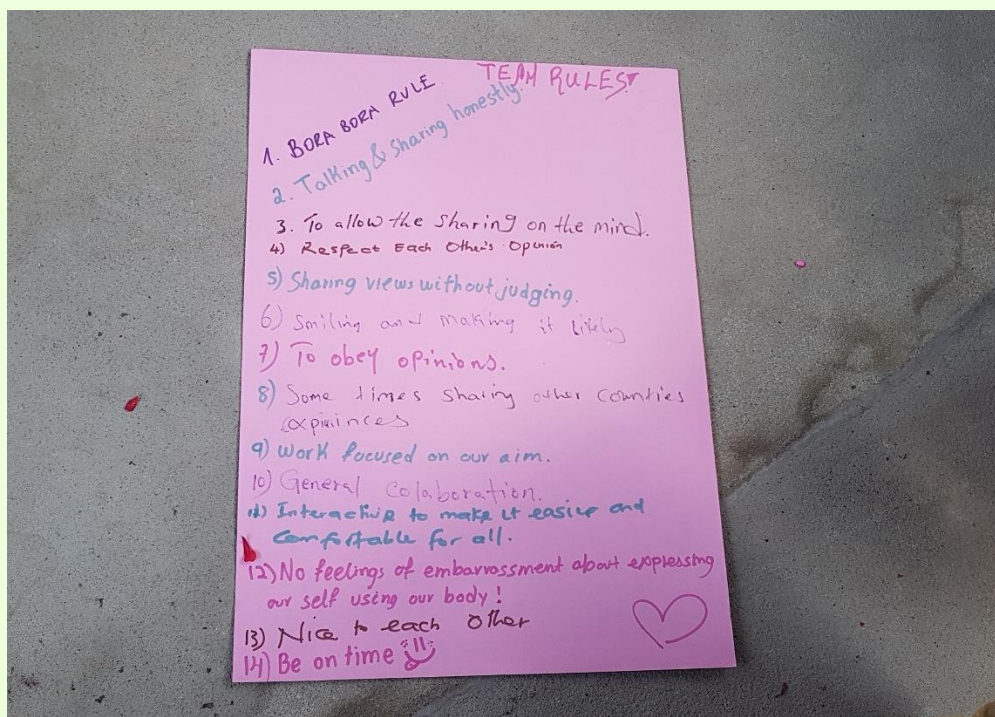 TEAM RULES!
1. BORA BORA RULE
2. Talking & Sharing honestly.
3. To allow the sharing on the mind.
4) Respect Each Other's Opinion
5) Sharing views without judging.
6) Smiling and making it likely
7) To obey opinions.
8) Some times sharing other counties
9) Work focused on our aim.
10) General Colaboration.
11) Interactive to make it easier and
Comfortable for all.
12) No feelings of embarrassment about expressing
our self using our body!
13) Nice to each other
14) Be on time